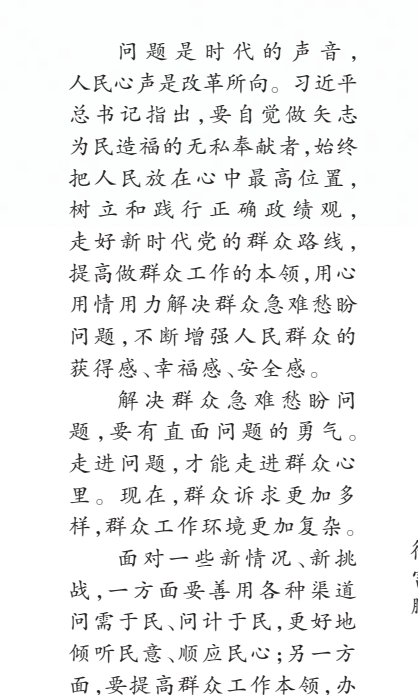 问题是时代的声音，
人民心声是改革所向。习近平
总书记指出，要自觉做矢志
为民造福的无私奉献者，始终
把人民放在心中最高位置，
树立和践行正确政绩观，
走好新时代党的群众路线，
提高做群众工作的本领，用心
用情用力解决群众急难愁盼
问题，不断增强人民群众的
获得感、幸福感、安全感。
解决群众急难愁盼问
题，要有直面问题的勇气。
走进问题，才能走进群众心
里。现在，群众诉求更加多
样，群众工作环境更加复杂。
面对一些新情况、新挑
战，一方面要善用各种渠道
问需于民、问计于民，更好地
倾听民意、顺应民心；另一方
面，要提高群众工作本领，办